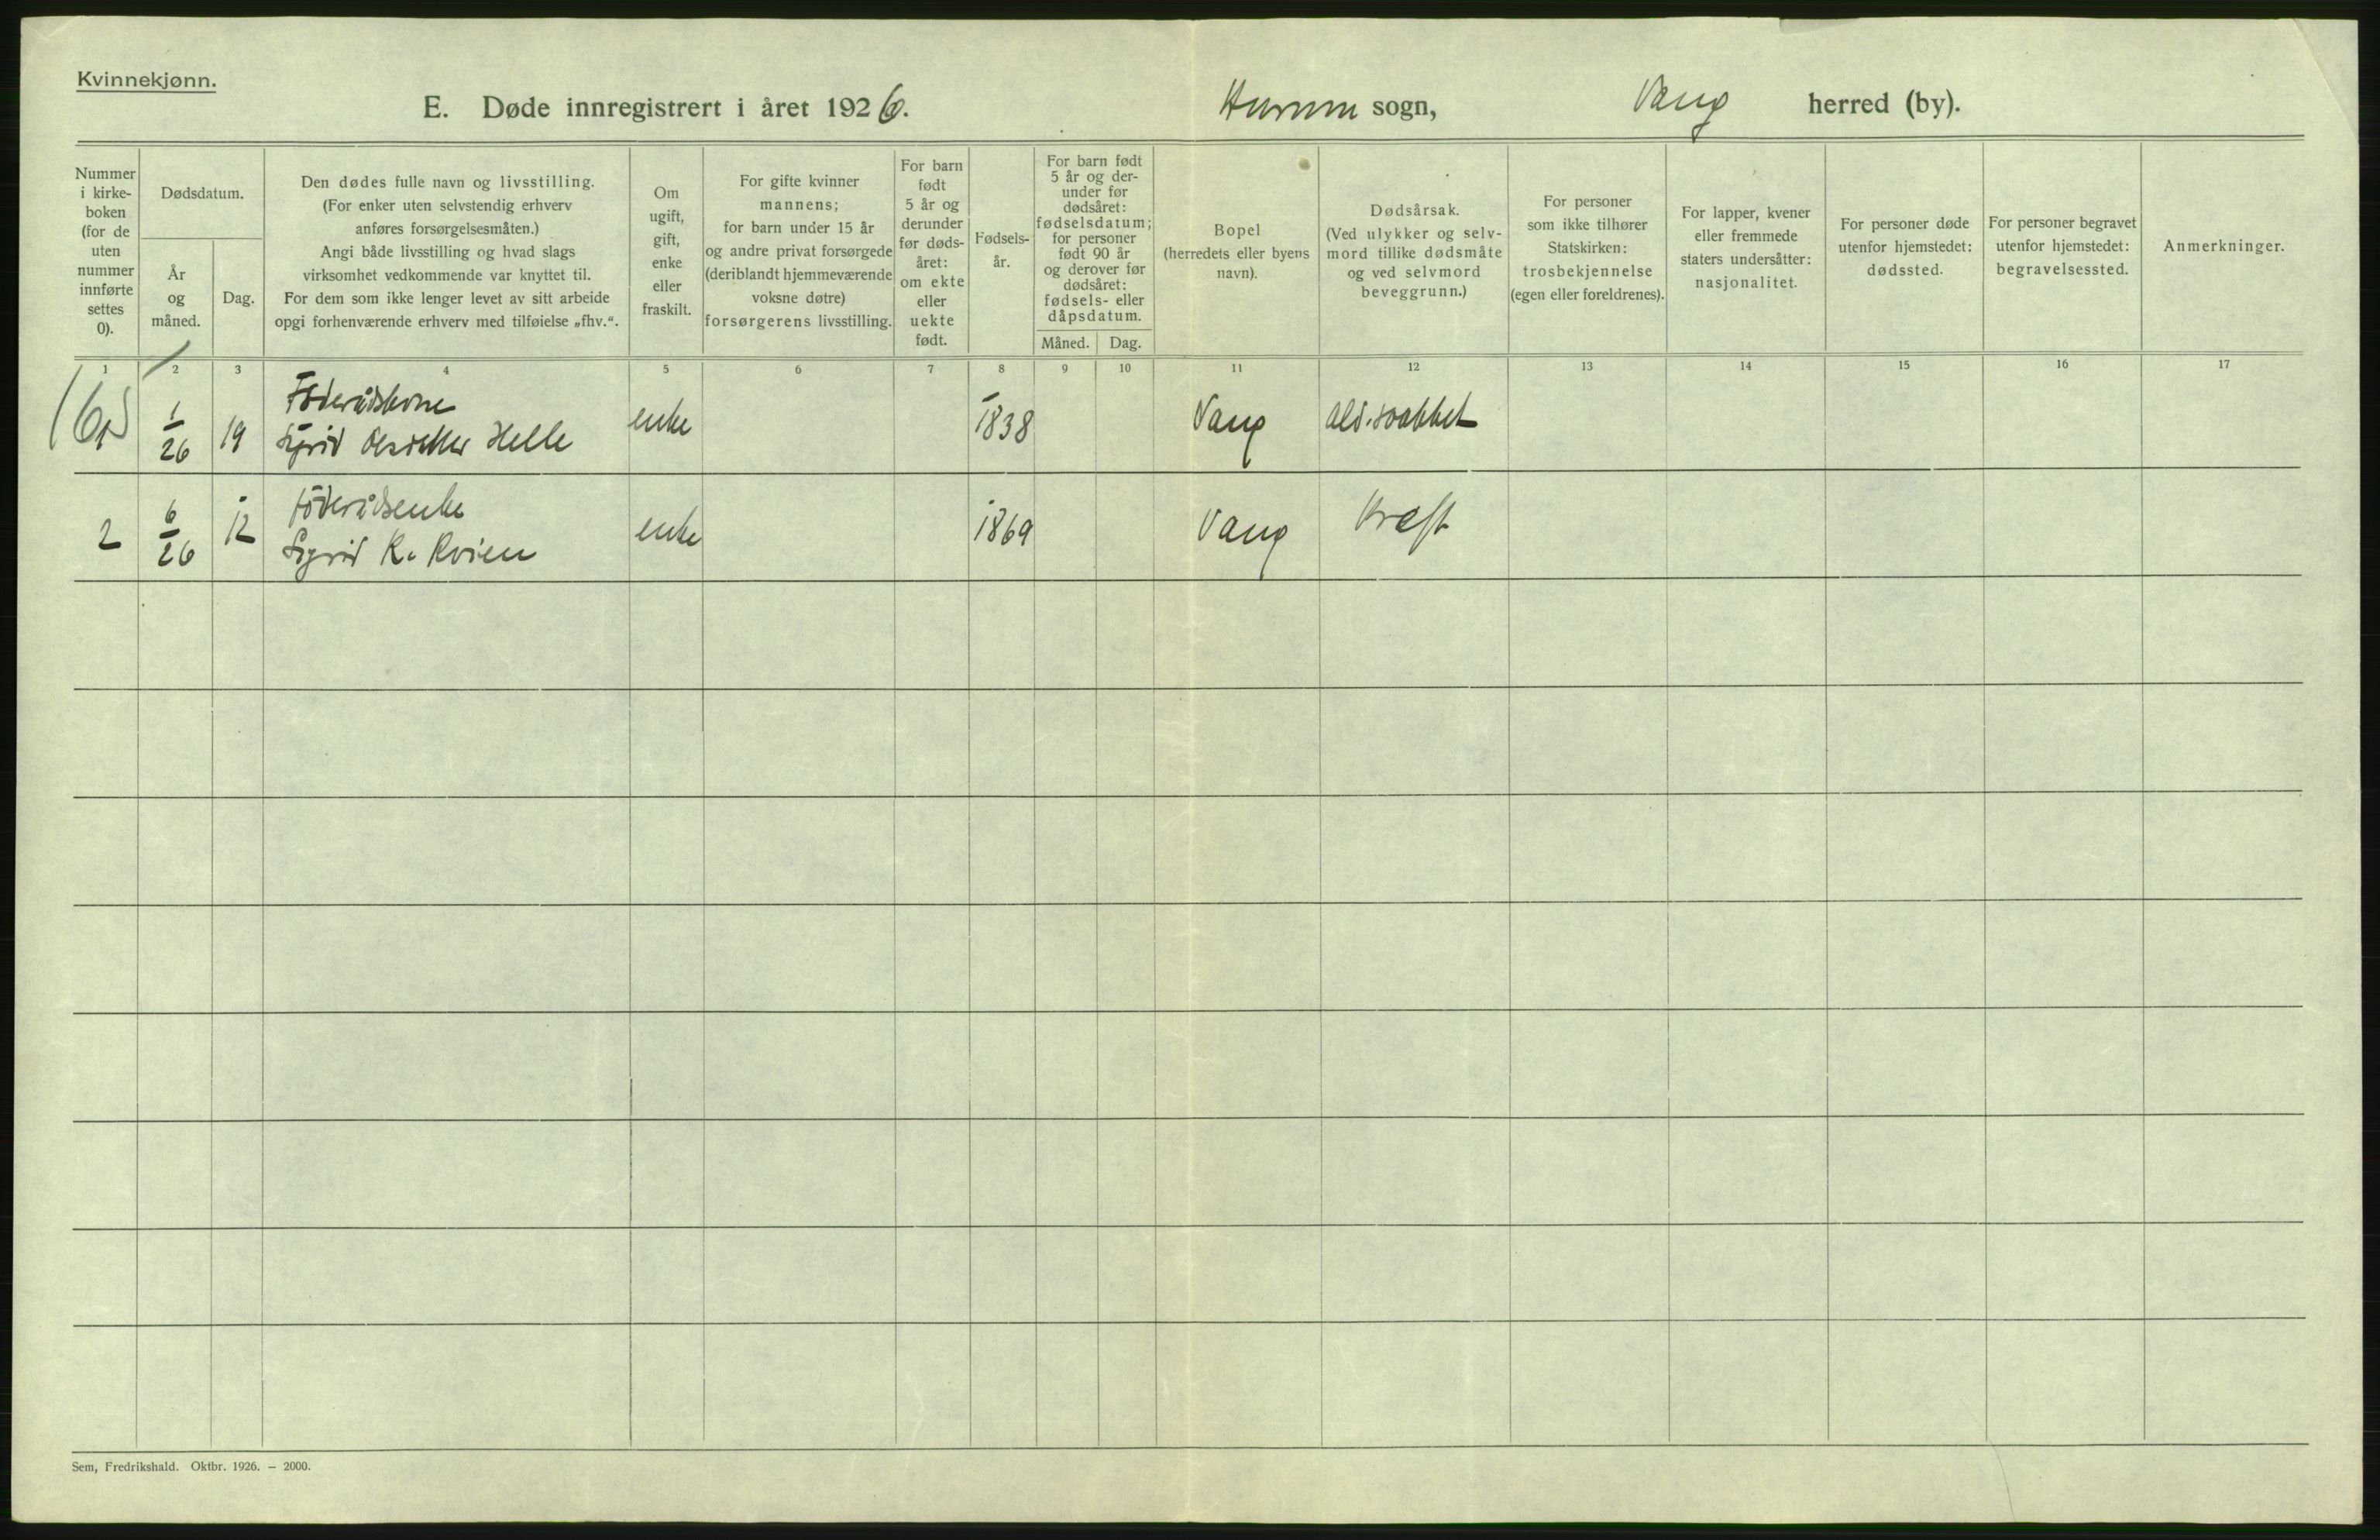 Kvinnekjønn.
E. Døde innregistrert i året 1926.
Hurum sogn,
Vang herred (by).
Nummer
i kirke-
boken
(for de
uten
nummer
innførte
settes
0).
Dødsdatum.
År
og
måned.
Dag.
Den dødes fulle navn og livsstilling.
(For enker uten selvstendig erhverv
anføres forsørgelsesmåten.)
Angi både livsstilling og hvad slags
virksomhet vedkommende var knyttet til.
For dem som ikke lenger levet av sitt arbeide
opgi forhenværende erhverv med tilføielse „fhv.“.
Om
ugift,
gift,
enke
eller
fraskilt.
For gifte kvinner
mannens;
for barn under 15 år
og andre privat forsørgede
(deriblandt hjemmeværende
voksne døtre)
forsørgerens livsstilling.
For barn
født
5 år og
derunder
før døds-
året:
om ekte
eller
uekte
født.
Fødsels-
år.
For barn født
5 år og der-
under før
dødsåret:
fødselsdatum;
for personer
født 90 år
og derover før
dødsåret:
fødsels- eller
dåpsdatum.
Måned. Dag.
Bopel
(herredets eller byens
navn).
Dødsårsak.
(Ved ulykker og selv-
mord tillike dødsmåte
og ved selvmord
beveggrunn.)
For personer
som ikke tilhører
Statskirken:
trosbekjennelse
(egen eller foreldrenes).
For lapper, kvener
eller fremmede
staters undersåtter:
nasjonalitet.
For personer døde
utenfor hjemstedet:
dødssted.
For personer begravet
utenfor hjemstedet:
begravelsessted.
Anmerkninger.
1 2 3 4 5 6 7 8 9 10 11 12 13 14 15 16 17
1 1/26 19 Föderådskone
Sigrid Olsdotter Helle enke 1838 Vang ald.svakket
2 6/26 12 föderådsenke
Sigrid K. Kvien enke 1869 Vang Kræft
Sem, Fredrikshald. Oktbr. 1926. – 2000.